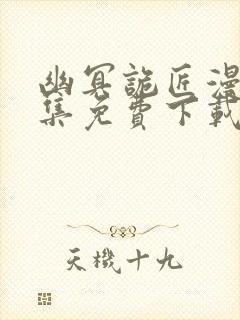 幽冥詭匠漫
集免費下載
天機十九